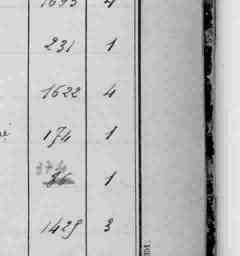 1695 4
231 1
1622 4
174 1
374
36 1
1429 3